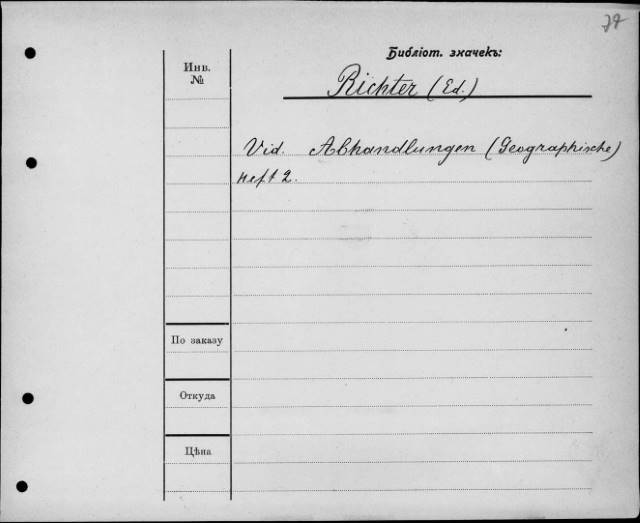 Библіот. значекъ:
Инв.
№
Richter (Ed.)
Vid. Abhandlungen (Geographische)
Heft 2.
По заказу
Откуда
Цѣна